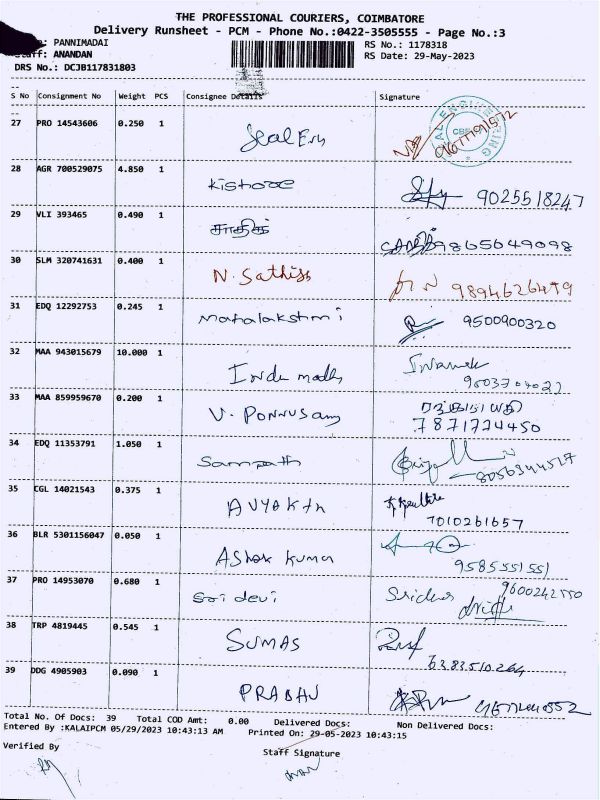 THE PROFESSIONAL COURIERS, COIMBATORE
Delivery Runsheet - PCM - Phone No.:0422-3505555 - Page No.:3
PANNIMADAI
RS No.: 1178318
Staff: ANANDAN
RS Date: 29-May-2023
DRS No.: DCJB117831803
S No Consignment No Weight PCS Consignee Details Signature
27 PRO 14543606 0.250 1
28 AGR 700529075 4.850 1 Kishore 9025518247
29 VLI 393465 0.490 1 சாதிக் 9865649098
30 SLM 320741631 0.400 1 N. Sathiss 9894626479
31 EDQ 12292753 0.245 1 Mahalakshmi 9500900320
32 MAA 943015679 10.000 1
33 MAA 859959670 0.200 1 V. PONNUSamy
7871724450
34 EDQ 11353791 1.050 1 Sampath 8056344517
35 CGL 14021543 0.375 1 AVYAKTh
7010261657
36 BLR 5301156047 0.050 1 AShok Kumar
9585551551
37 PRO 14953070 0.680 1 Sri devi Sridhar
38 TRP 4819445 0.545 1 SUMAS
6383510264
39 DDG 4905903 0.090 1 PRABHU
Total No. Of Docs: 39 Total COD Amt: 0.00 Delivered Docs: Non Delivered Docs:
Entered By :KALAIPCM 05/29/2023 10:43:13 AM Printed On: 29-05-2023 10:43:15
Verified By
Staff Signature